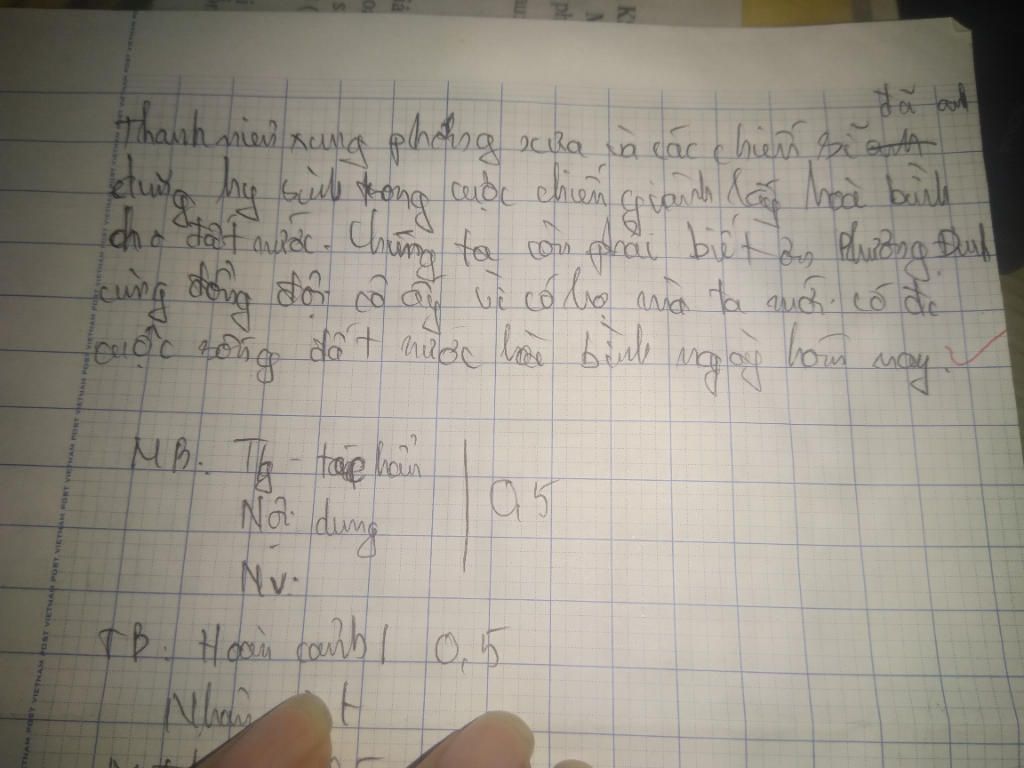 đã anh
Thanh niên xung phong xưa và các chiến sĩ
dũng hy sinh trong cuộc chiến giành lấy hoà bình
cho đất nước. Chúng ta cần phải biết ơn Phương Định
cùng đồng đội cô ấy vì có họ mà ta mới có đc
cuộc sống đất nước hoà bình ngày hôm nay.
MB. Tg - tác phẩm
Nội dung 0,5
Nv.
TB. Hoàn cảnh 0,5
Nhân
VIETNAM POST VIETNAM POST VIETNAM POST